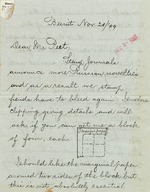 Beirut Nov. 28/44
Dear Mr. Peet,
Stamp Journals
announce more Russian novelties
and as a result we stamp
fiends have to bleed again. I enclose
clipping giving details and will
ask if you can get me a block
of four each
I should like the marginal paper
around two sides of the block but
this is not absolutely essential